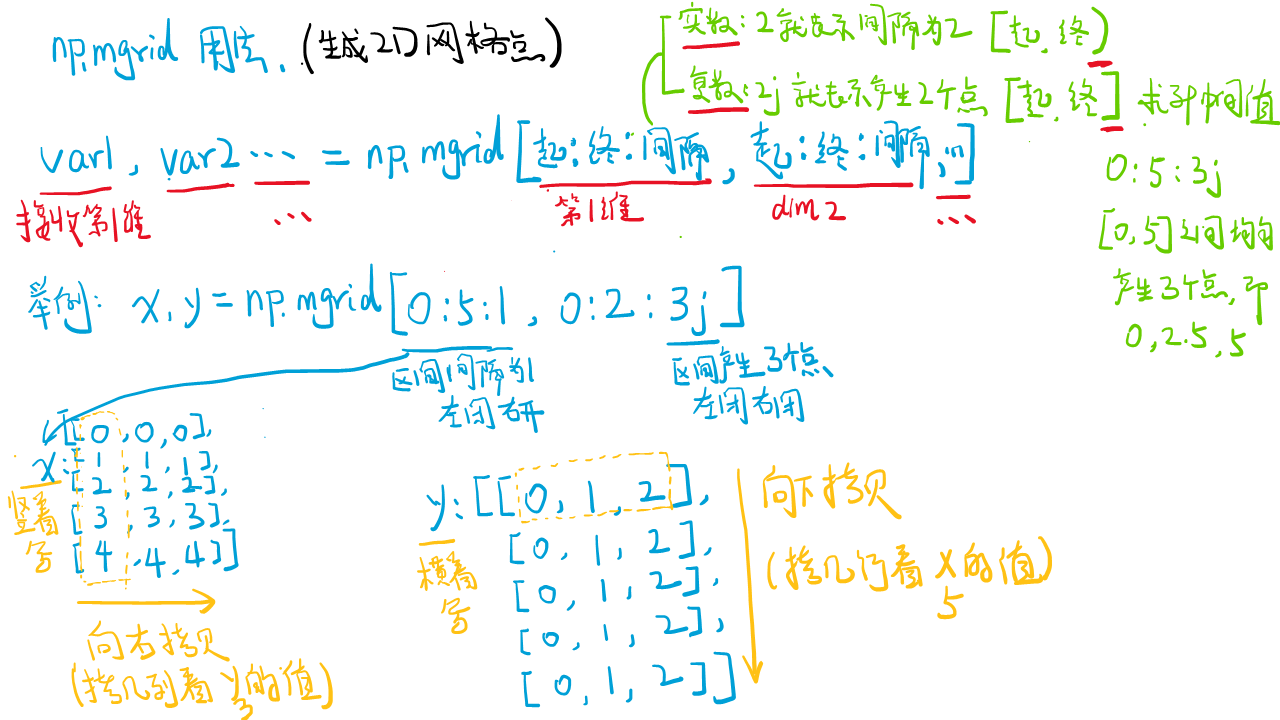 np.mgrid 用法. (生成2D网格点)
实数: 2就表示间隔为2 [起, 终)
复数: 2j 就表示产生2个点 [起, 终] 求到中间值
var1, var2 ... = np.mgrid[起:终:间隔, 起:终:间隔, ...]
接收第1维 ... 第1维 dim 2 ...
0:5:3j
[0,5]之间均匀
产生3个点, 即
0, 2.5, 5
举例: x, y = np.mgrid[0:5:1, 0:2:3j]
区间间隔为1
左闭右开
区间产生3个点
左闭右闭
x: [[0, 0, 0],
[1, 1, 1],
[2, 2, 2],
[3, 3, 3],
[4, 4, 4]]
竖着
写
向右拷贝
(拷几列看y的值)
3
y: [[0, 1, 2],
[0, 1, 2],
[0, 1, 2],
[0, 1, 2],
[0, 1, 2]]
横着
写
向下拷贝
(拷几行看x的值)
5